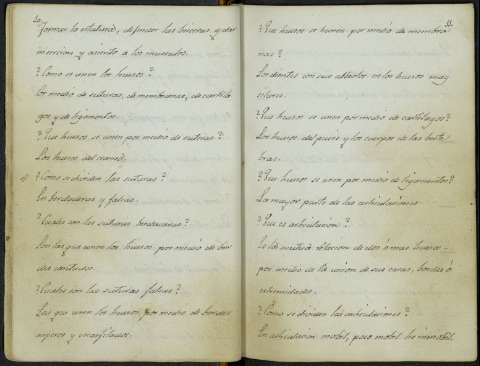 20
Formar la estatura, defender las vísceras, y dar
insercion y asiento a los musculos.
?Como se unen los huesos?
Por medio de suturas, de membranas, de cartila
gos y de ligamentos.
?Que huesos, se unen por medio de suturas?
Los huesos del craneo.
?Como se dividen las suturas?
En verdaderas y falsas.
?Cuales son las suturas verdaderas?
Son las que unen los huesos por medio de bor
des
?Cuales son las suturas falsas?
Las que unen los huesos, por medio de bordes
ajeros y
?Que huesos se unen por medio de membra
nas?
Los dientes con sus alveolos en los huesos muy
?Que huesos se unen por medio de cartilagos?
Los huesos del puvis y los cuerpos de las verte
bras.
?Que huesos se unen por medio de ligamentos?
La mayor parte de las articulaciones
?Que es articulacion?
Es la mutua relacion de dos ó mas huesos
por medio de la union de sus caras, bordes ó
extremidades.
?Como se dividen las articulaciones?
En articulacion mobil, poco mobil he immobil.